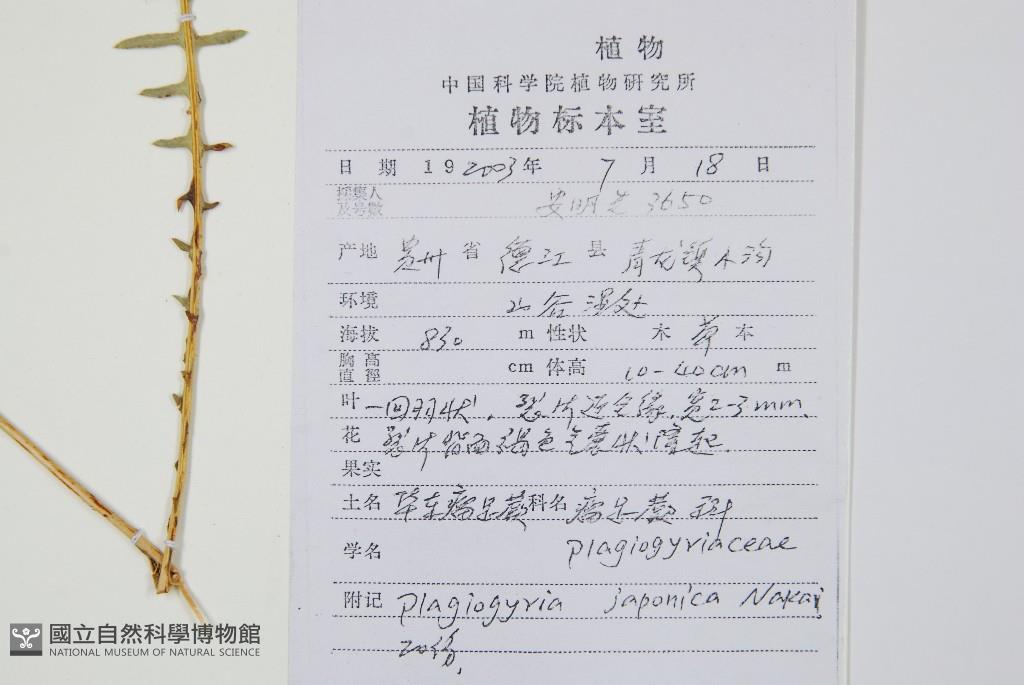 植物
中国科学院植物研究所
植物标本室
日期 19 2003年 7月 18日
採集人
及号数 安明先 3650
产地 贵州省 德江县 青龙镇木沟
环境 山谷湿处
海拔 830 m 性状 木草本
胸高
直徑 cm 体高 10-40cm m
叶 一回羽状, 裂片近全缘, 宽2-3mm,
花 裂片背面褐色 隆起.
果实
土名 华东瘤足蕨 科名 瘤足蕨科
学名 Plagiogyriaceae
附记 Plagiogyria japonica Nakai,
20份,
國立自然科學博物館
NATIONAL MUSEUM OF NATURAL SCIENCE